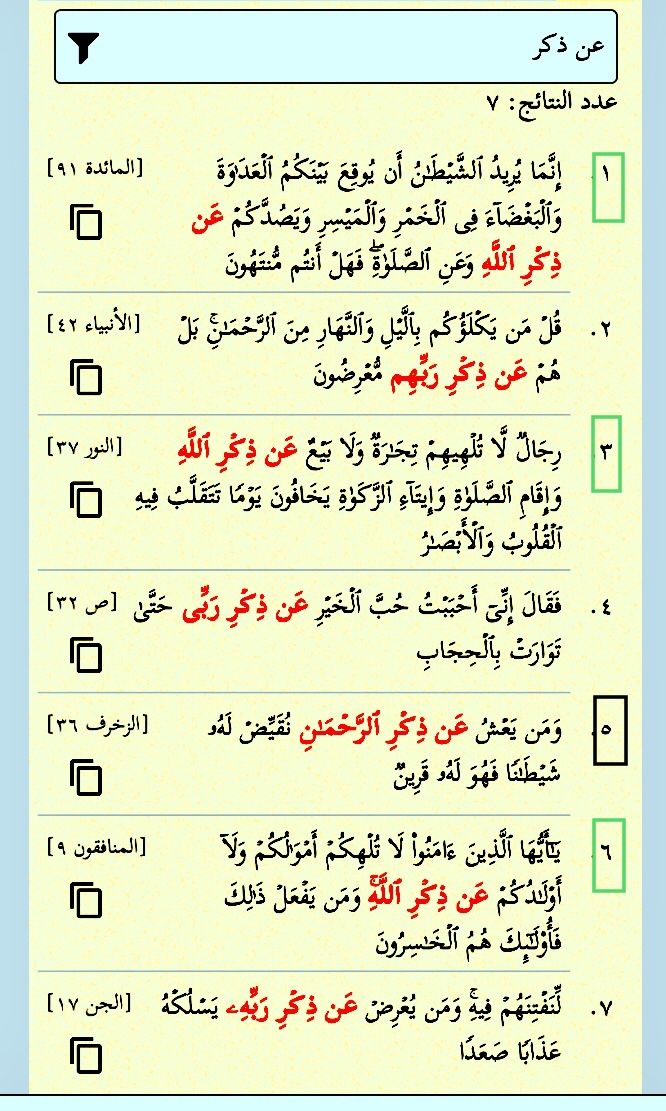 عن ذكر
عدد النتائج: ٧
١. إِنَّمَا يُرِيدُ ٱلشَّيْطَـٰنُ أَن يُوقِعَ بَيْنَكُمُ ٱلْعَدَٰوَةَ [المائدة ٩١]
وَٱلْبَغْضَآءَ فِى ٱلْخَمْرِ وَٱلْمَيْسِرِ وَيَصُدَّكُمْ عَن
ذِكْرِ ٱللَّهِ وَعَنِ ٱلصَّلَوٰةِۖ فَهَلْ أَنتُم مُّنتَهُونَ
٢. قُلْ مَن يَكْلَؤُكُم بِٱلَّيْلِ وَٱلنَّهَارِ مِنَ ٱلرَّحْمَـٰنِۚ بَلْ [الأنبياء ٤٢]
هُمْ عَن ذِكْرِ رَبِّهِم مُّعْرِضُونَ
٣. رِجَالٌ لَّا تُلْهِيهِمْ تِجَـٰرَةٌ وَلَا بَيْعٌ عَن ذِكْرِ ٱللَّهِ [النور ٣٧]
وَإِقَامِ ٱلصَّلَوٰةِ وَإِيتَآءِ ٱلزَّكَوٰةِ يَخَافُونَ يَوْمًا تَتَقَلَّبُ فِيهِ
ٱلْقُلُوبُ وَٱلْأَبْصَـٰرُ
٤. فَقَالَ إِنِّىٓ أَحْبَبْتُ حُبَّ ٱلْخَيْرِ عَن ذِكْرِ رَبِّى حَتَّىٰ [ص ٣٢]
تَوَارَتْ بِٱلْحِجَابِ
٥. وَمَن يَعْشُ عَن ذِكْرِ ٱلرَّحْمَـٰنِ نُقَيِّضْ لَهُۥ [الزخرف ٣٦]
شَيْطَـٰنًا فَهُوَ لَهُۥ قَرِينٌ
٦. يَـٰٓأَيُّهَا ٱلَّذِينَ ءَامَنُوا۟ لَا تُلْهِكُمْ أَمْوَٰلُكُمْ وَلَآ [المنافقون ٩]
أَوْلَـٰدُكُمْ عَن ذِكْرِ ٱللَّهِۚ وَمَن يَفْعَلْ ذَٰلِكَ
فَأُو۟لَـٰٓئِكَ هُمُ ٱلْخَـٰسِرُونَ
٧. لِّنَفْتِنَهُمْ فِيهِۚ وَمَن يُعْرِضْ عَن ذِكْرِ رَبِّهِۦ يَسْلُكْهُ [الجن ١٧]
عَذَابًا صَعَدًا